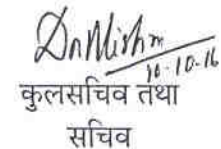 10-10-16
कुलसचिव तथा
सचिव